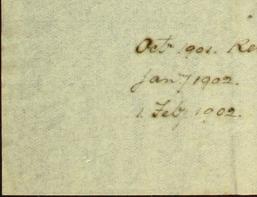 Oct 1901. Re
Jan 7 1902.
1. Feb. 1902.